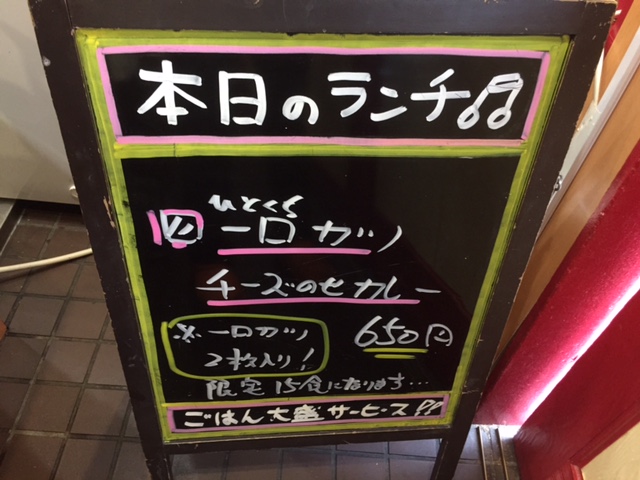 本日のランチ♫
ひとくち
⑭ 一口カツ
チーズのせカレー
※一口カツ
2枚入り!
650円
限定15食になります…
ごはん大盛サービス!!